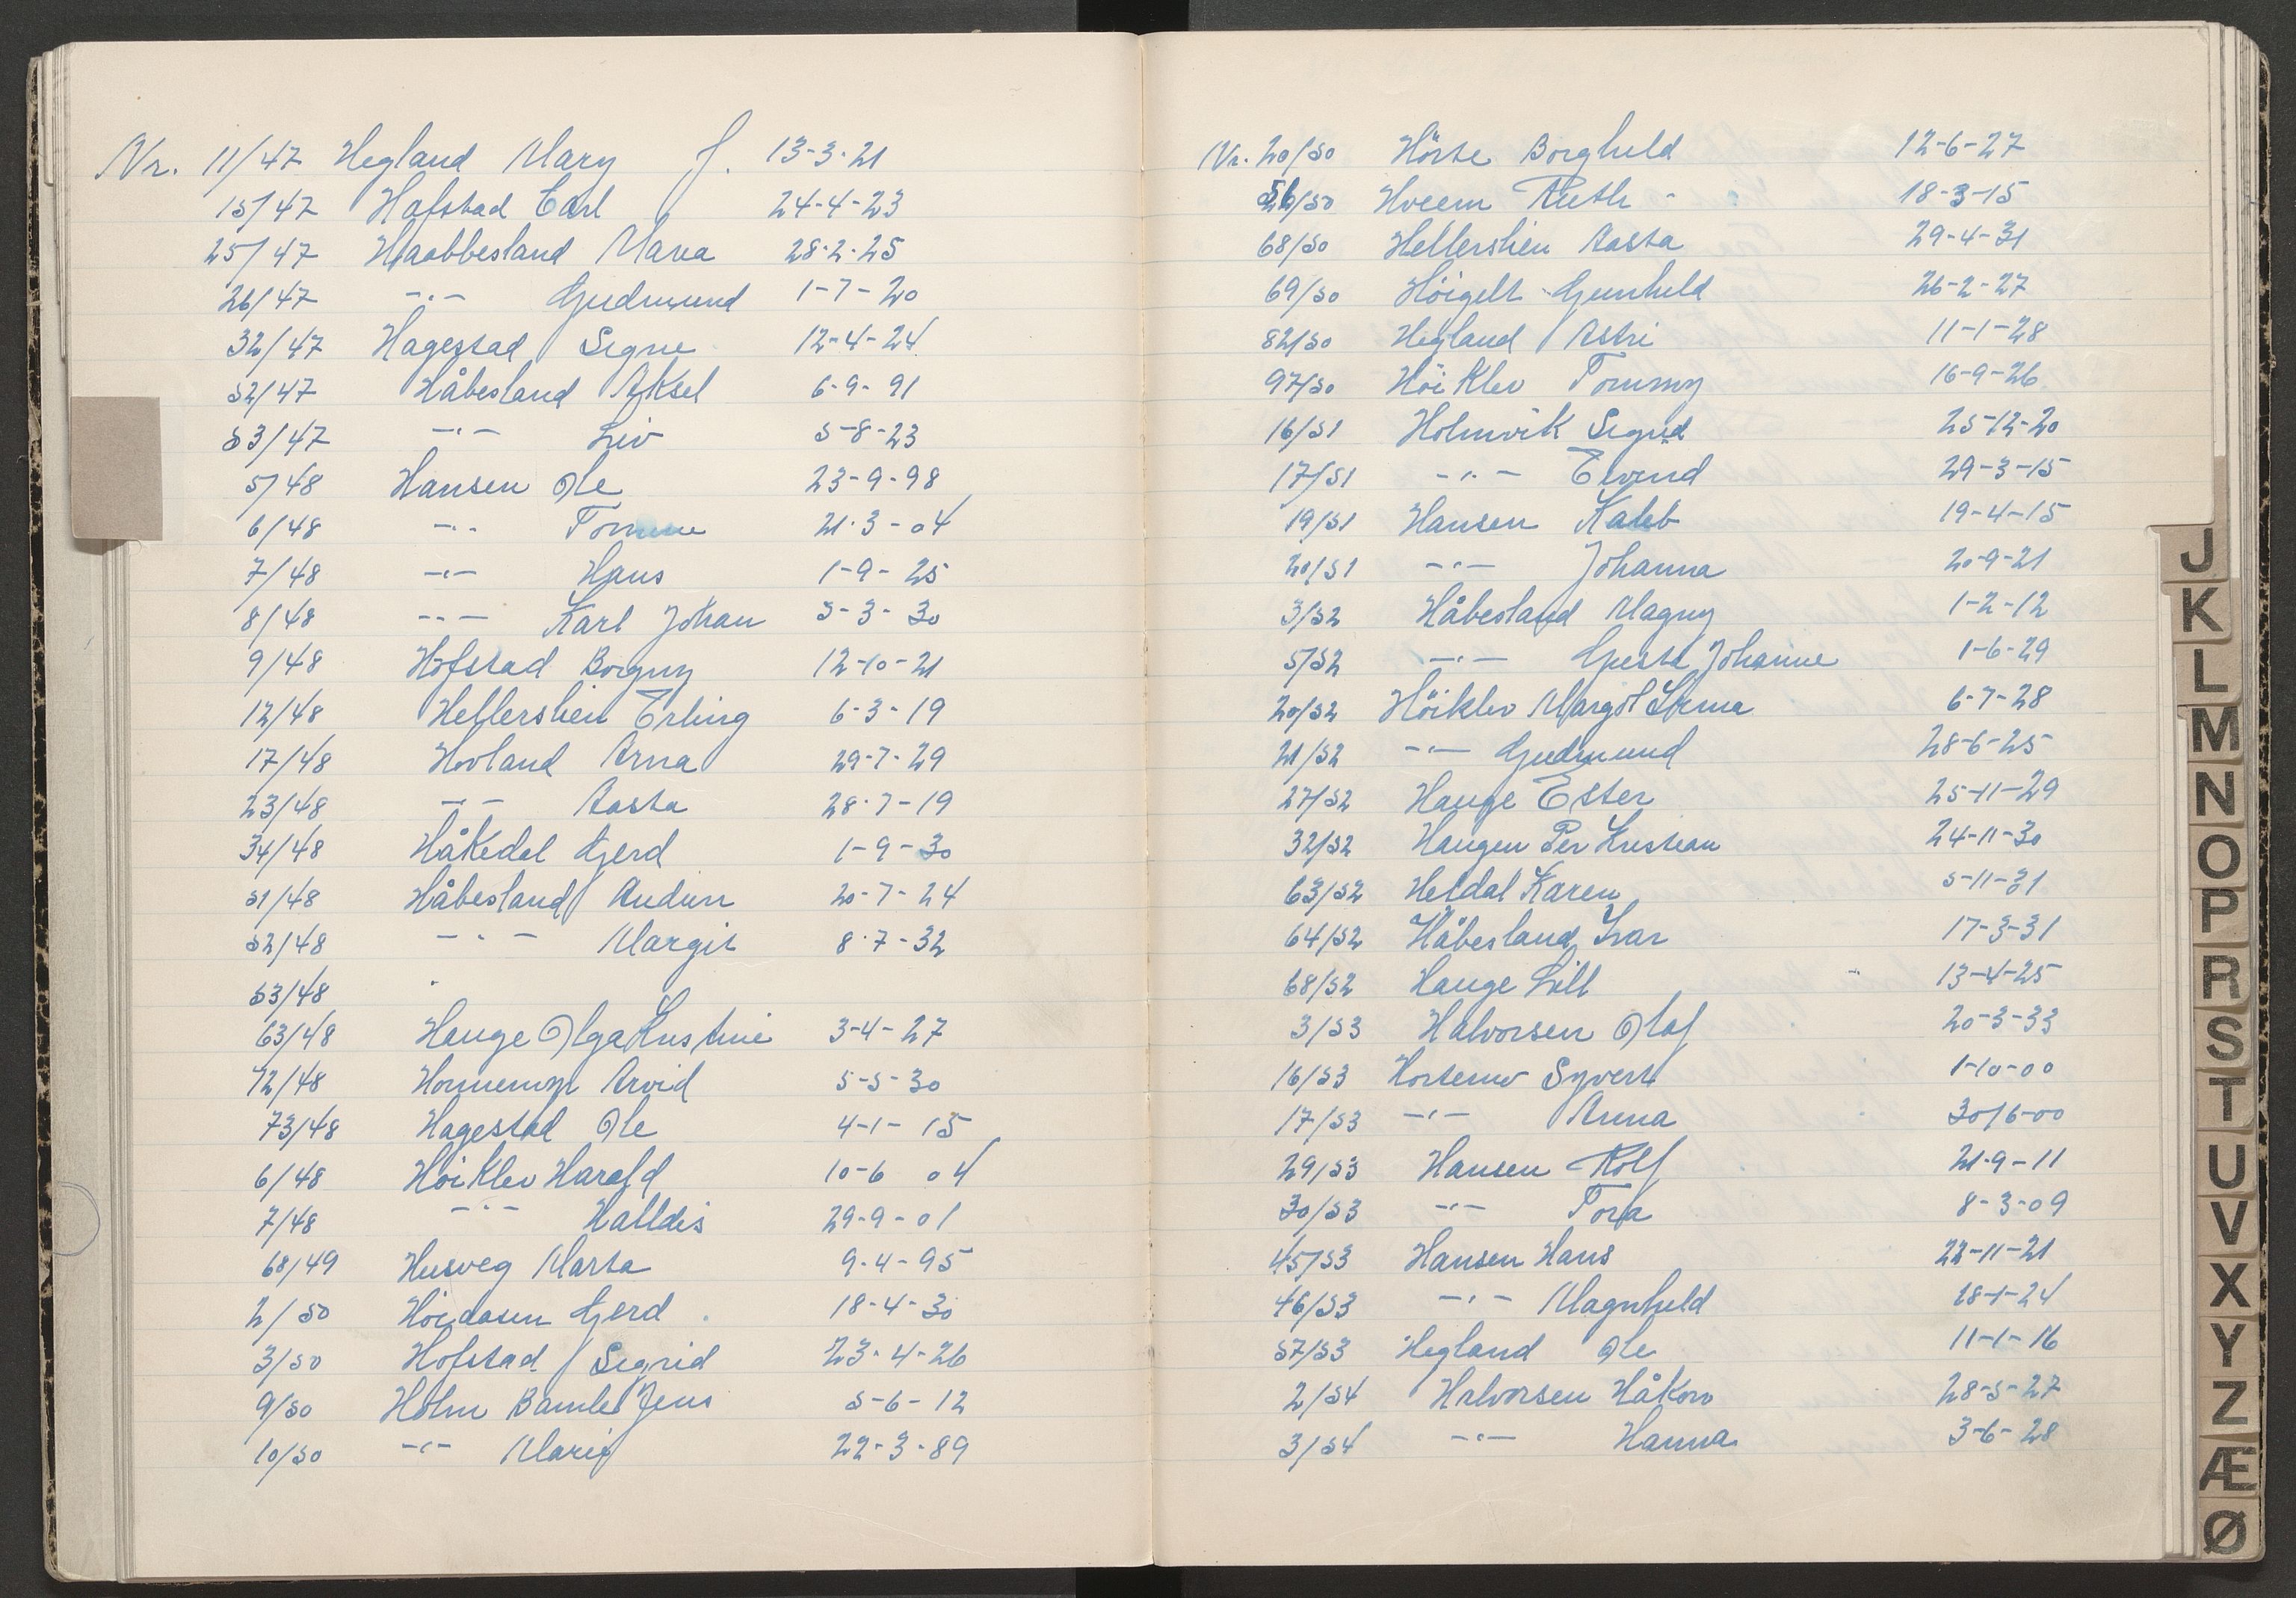 Nr. 11/47 Hegland Mary J. 13-3-21
15/47 Hafstad Carl 24-4-23
25/47 Haabbesland Maria 28-2-25
26/47 -"- Gudmund 1-7-20
32/47 Hagestad Signe 12-4-24
52/47 Håbesland Aksel 6-9-91
53/47 -"- Liv 5-8-23
5/48 Hansen Ole 23-9-98
6/48 -"- Tomine 21-3-04
7/48 -"- Hans 1-9-25
8/48 -"- Karl Johan 5-3-30
9/48 Hofstad Borgny 12-10-21
12/48 Hellerslien Erling 6-3-19
17/48 Hovland Arna 29-7-29
23/48 -"- Aasta 28-7-19
34/48 Håkedal Gjerd 1-9-30
51/48 Håbesland Audun 20-7-24
52/48 -"- Margit 8-7-32
53/48 "
63/48 Hauge Olga Kristine 3-4-27
72/48 Arvid 5-5-30
73/48 Hagestad Ole 4-1-15
6/48 Höiklev Harald 10-6 04
7/48 -"- Halldis 29-9-01
68/49 Husveg Marta 9-4-95
2/50 Höidasen Gjerd 18-4-30
3/50 Hofstad Sigrid 23-4-26
9/50 Holm Bamle Jens 5-6-12
10/50 -"- Marie 22-3-89
Nr. 20/50 Hörte Borghild 12-6-27
56/50 Hveem Ruth - 18-3-15
68/50 Hellerslien Aasta 29-4-31
69/50 Höigilt Gunhild 26-2-27
82/50 Hegland Astri 11-1-28
97/50 Höiklev Tommy 16-9-26
16/51 Holmvik Sigrid 25-12-20
17/51 -"- Eivind 29-3-15
19/51 Hansen Kaleb 19-4-15
20/51 -"- Johanna 20-9-21
3/52 Håbesland Magny 1-2-12
5/52 -"- Johanne 1-6-29
20/52 Höiklev Margot 6-7-28
21/52 -"- Gudmund 28-6-25
27/52 Hauge Ester 25-11-29
32/52 Haugen Per Kristian 24-11-30
63/52 Heldal Karen 5-11-31
64/52 Håbesland Ivar 17-3-31
68/52 Hauge Lill 13-4-25
3/53 Halvorsen Olaf 20-3-33
16/53 Hortemo Syvert 1-10-00
17/53 -"- Anna 30/6-00
29/53 Hansen Rolf 21-9-11
30/53 -"- Tora 8-3-09
45/53 Hansen Hans 22-11-21
46/53 -"- Magnhild 18-1-24
57/53 Hegland Ole 11-1-16
2/54 Halvorsen Håkon 28-5-27
3/54 -"- Hanna 3-6-28
J
K
L
M
N
O
P
R
S
T
U
V
X
Y
Z
Æ
Ø